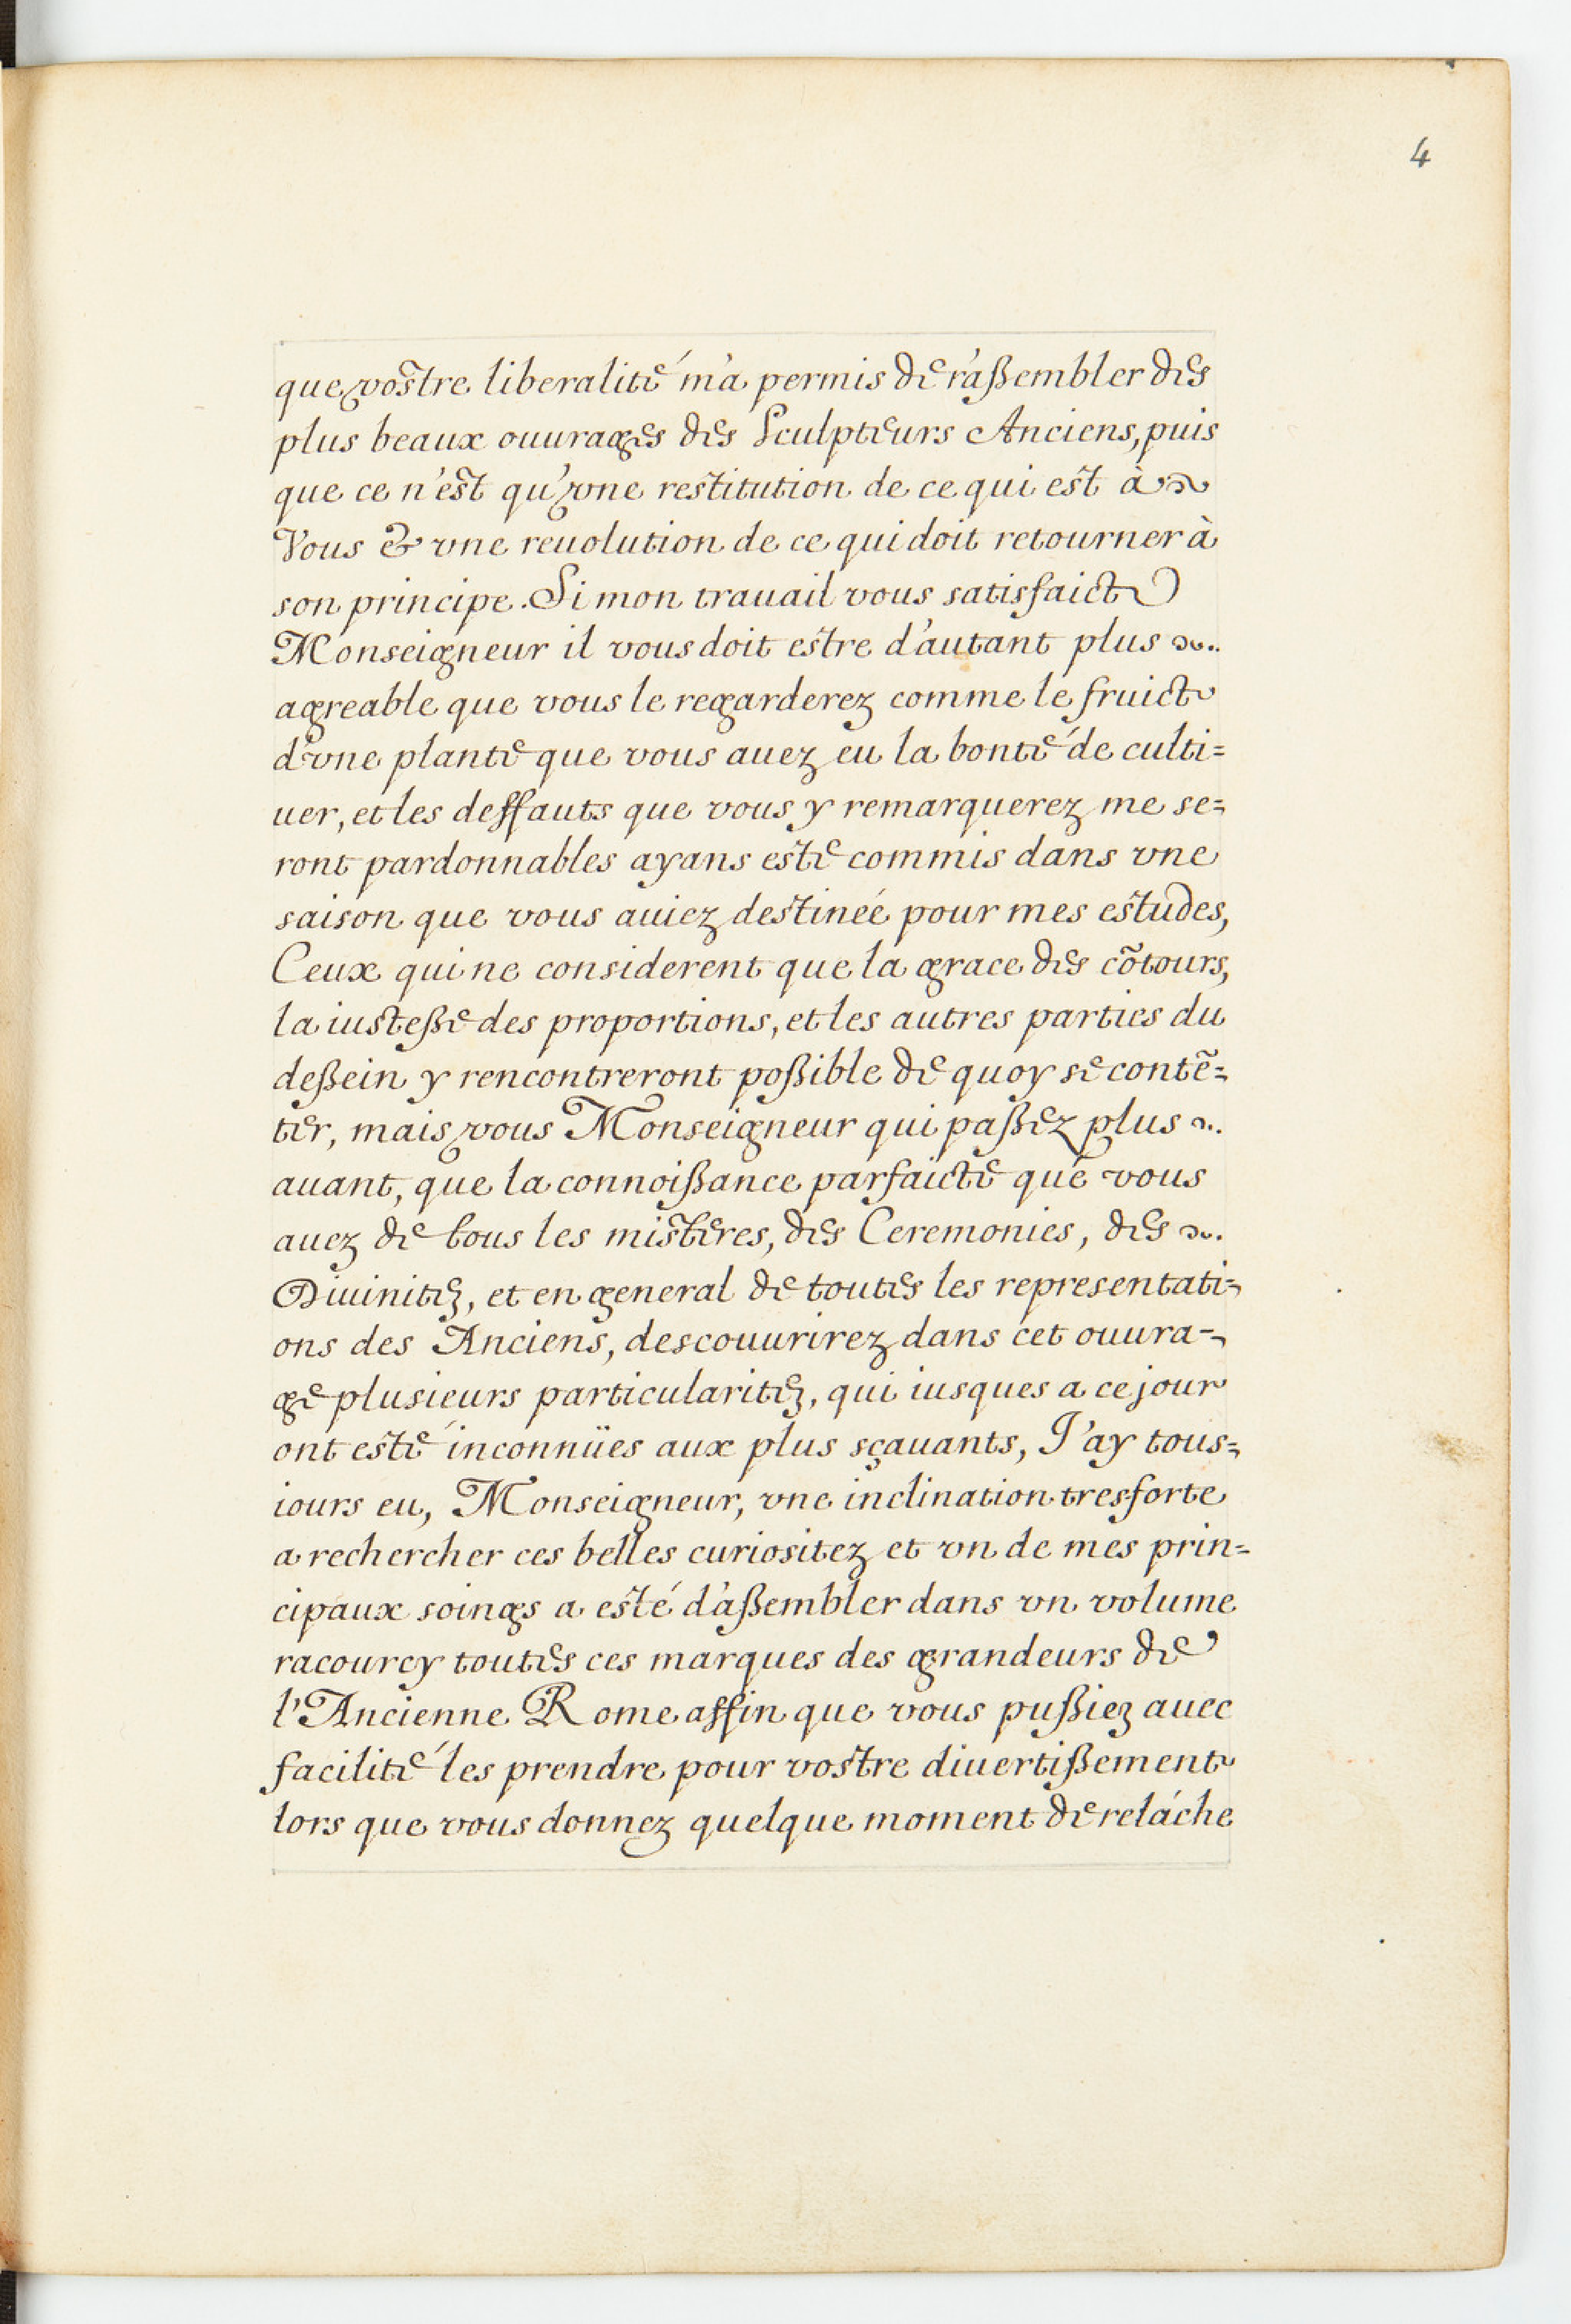 4
que vostre liberalité m'a permis de r'aßembler des
plus beaux ouurages des Sculpteurs Anciens, puis
que ce n'est qu'vne restitution de ce qui est à
Vous & vne reuolution de ce qui doit retourner à
son principe. Si mon trauail vous satisfaict
Monseigneur il vous doit estre d'autant plus
agreable que vous le regarderez comme le fruict
d'vne plante que vous auez eu la bonté de culti=
uer, et les deffauts que vous y remarquerez me se=
ront pardonnables ayans esté commis dans vne
saison que vous auiez destineé pour mes estudes,
Ceux qui ne considerent que la grace des cõtours,
la iusteße des proportions, et les autres parties du
deßein y rencontreront poßible de quoy se contẽ=
ter, mais vous Monseigneur qui paßez plus
auant, que la connoißance parfaicte que vous
auez de tous les misteres, des Ceremonies, des
Diuinitez, et en general de toutes les representati=
ons des Anciens, descouurirez dans cet ouura=
ge plusieurs particularitez, qui iusques a ce jour
ont esté inconnües aux plus sçauants, J'ay tous=
iours eu, Monseigneur, vne inclination tresforte
a rechercher ces belles curiositez et vn de mes prin=
cipaux soings a esté d'aßembler dans vn volume
racourcy toutes ces marques des grandeurs de
l'Ancienne Rome affin que vous pußiez auec
facilité les prendre pour vostre diuertißement
lors que vous donnez quelque moment de relâche